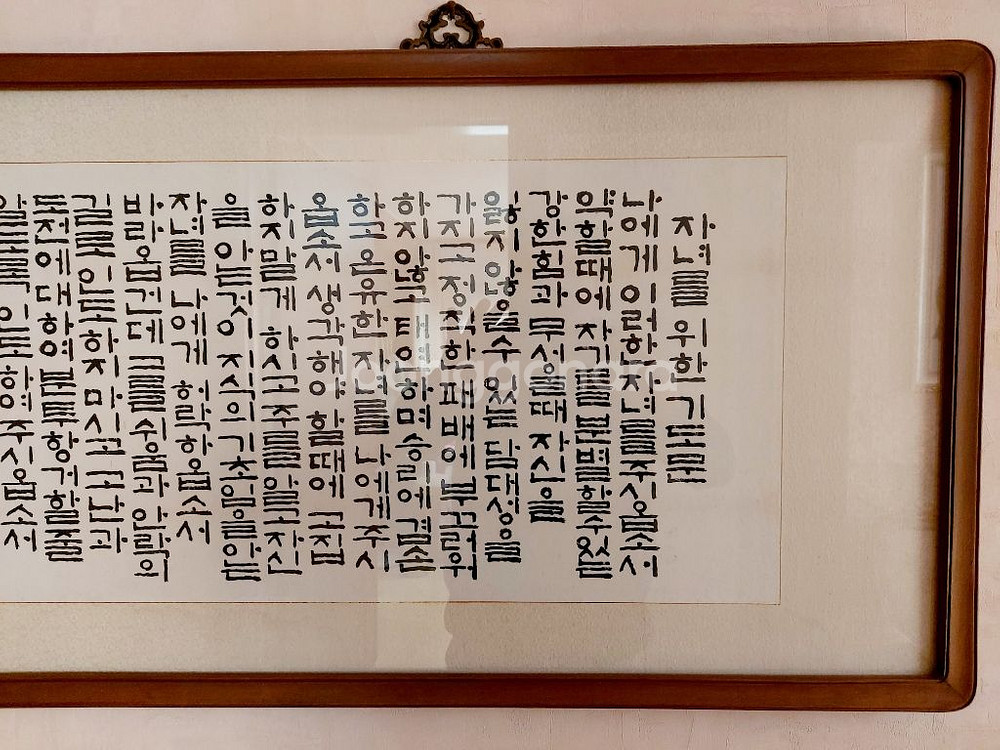 자녀를 위한 기도문
나에게 이러한 자녀를 주시옵소서
약할때에 자기를 분별할수있는
강한힘과 무서울때 자신을
잃지 않을수 있는 담대성을
가지고 정직한 패배에 부끄러워
하지 않고 태연하며 승리에 겸손
하고 온유한 자녀를 나에게 주시
옵소서 생각해야 할때에 고집
하지말게 하시고 주를 알고 자신
을 아는것이 지식의 기초임을 아는
자녀를 나에게 허락하옵소서
바라옵건데 그를 쉬움과 안락의
길로 인도하지 마시고 고난과
도전에 대하여 분투 항거할줄
알도록 인도하여 주시옵소서
joonggonara